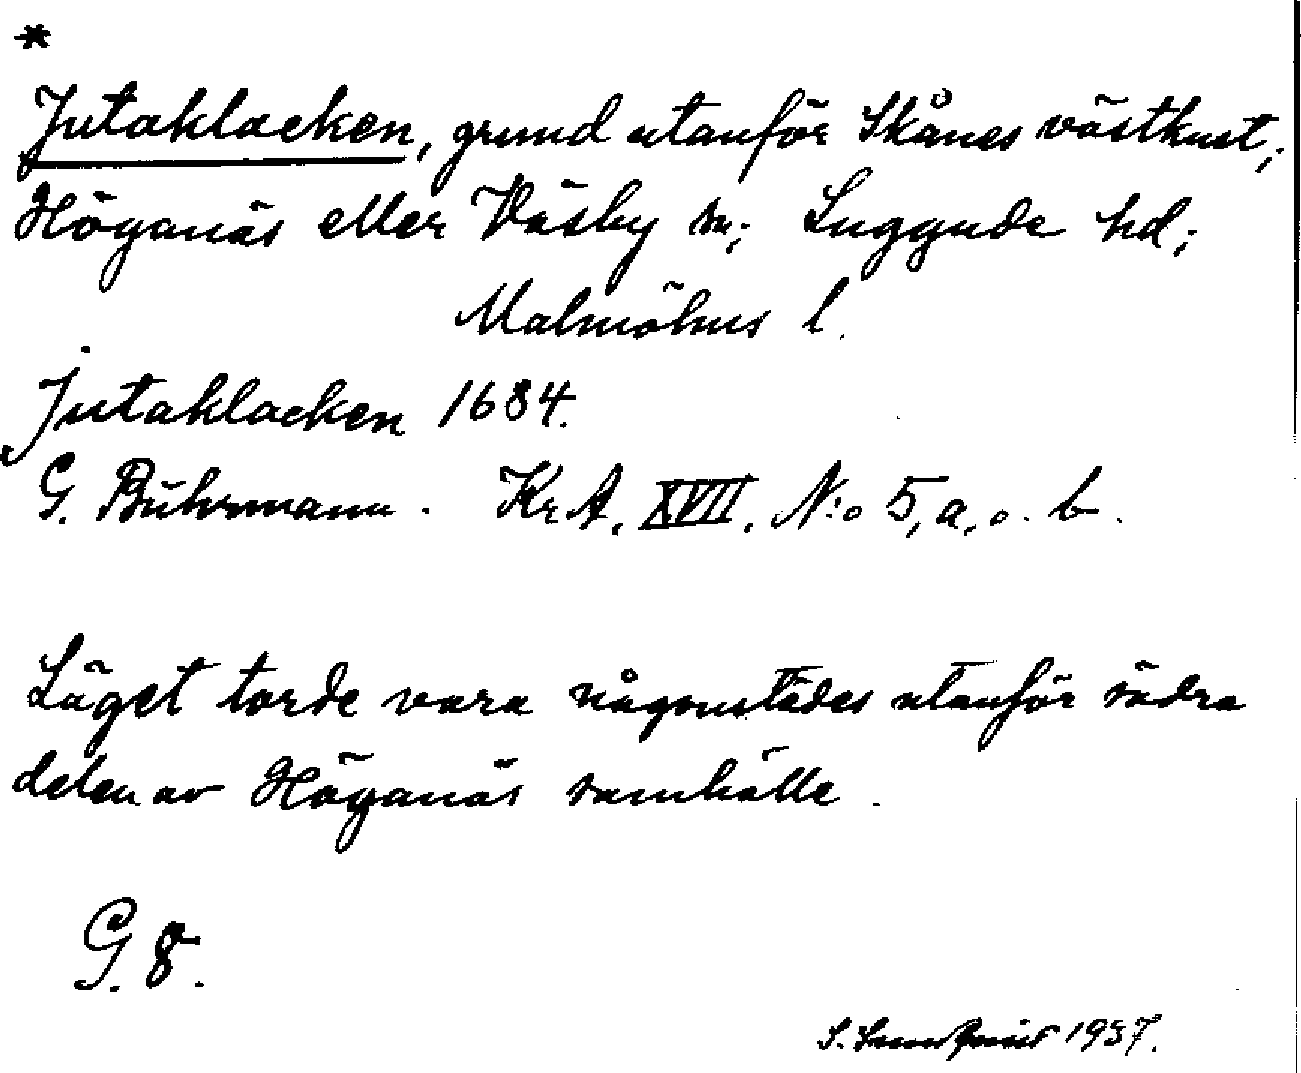 *
Jutaklacken, grund utanför Skånes västkust;
Höganäs eller Väsby sn; Luggude hd;
Malmöhus l.
Jutaklacken 1684.
G. Bührmann. Kr.A. XVII. N:o 5, a, o. b.
Läget torde vara någonstädes utanför södra
delen av Höganäs samhälle.
G. 8.
S. 1937.